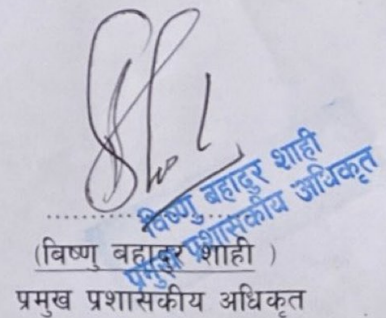 विष्णु बहादुर शाही
प्रमुख प्रशासकीय अधिकृत
(विष्णु बहादुर शाही )
प्रमुख प्रशासकीय अधिकृत